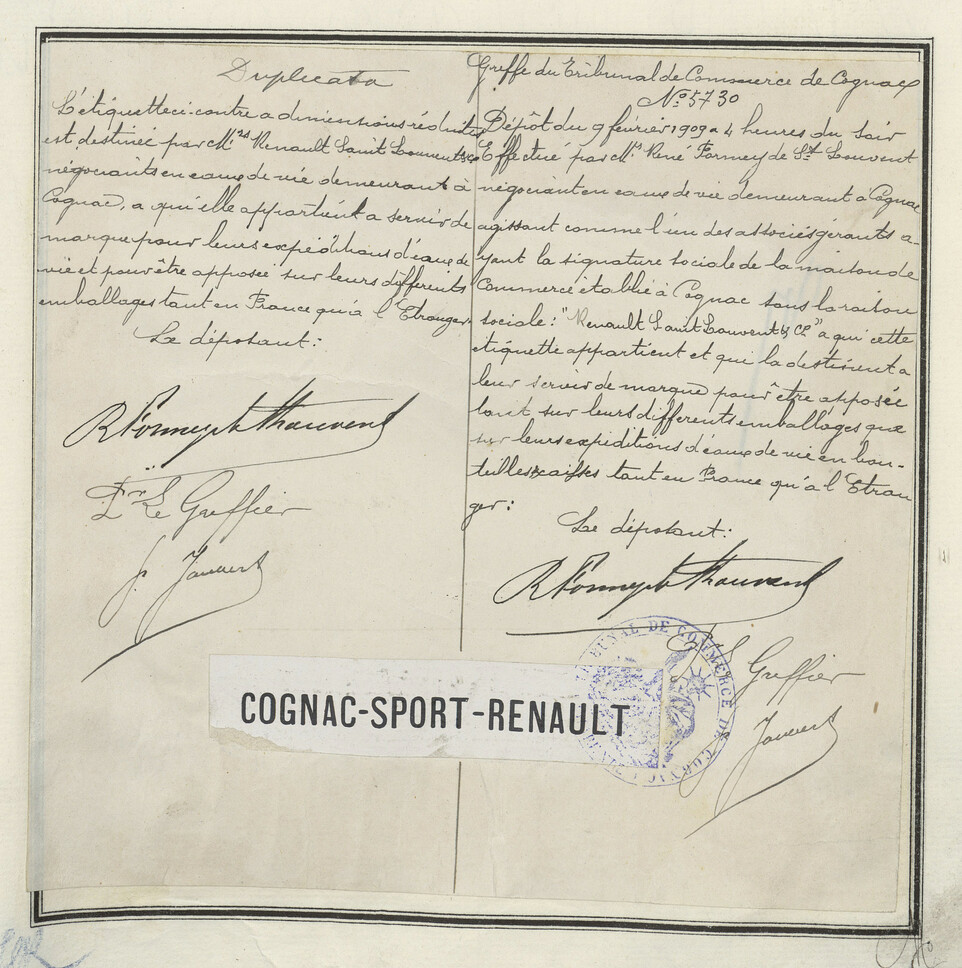 Duplicata
L'étiquette ci-contre a dimensions réduites
est destinée par Mrs Renault Saint Lauvent & Co
négociants en eaux de vie demeurant à
Cognac, a qui elle appartient a servir de
marque pour leurs expéditions d'eaux de
vie et pour être apposée sur leurs différents
emballages tant en France qu'à l'Etranger.
Le déposant:
R Formey de St Lauvent
Pr Le Greffier
J. Jauvert
Greffe du Tribunal de Commerce de Cognac
No 5730
Dépôt du 9 février 1909 a 4 heures du soir
Effectué par Mr René Formey de St Lauvent
négociant en eaux de vie demeurant à Cognac
agissant comme l'un des associés gérants a-
yant la signature sociale de la maison de
Commerce établie à Cognac sous la raison
sociale: "Renault Saint Lauvent & Ce" a qui cette
étiquette appartient et qui la destinent a
leur servir de marque pour être apposée
tant sur leurs différents emballages que
sur leurs expéditions d'eaux de vie en bou-
teilles & caisses tant en France qu'a l'Etran
ger:
Le déposant:
R Formey de St Lauvent
Pr Le Greffier
Jauvert
COGNAC-SPORT-RENAULT
TRIBUNAL DE COMMERCE DE COGNAC